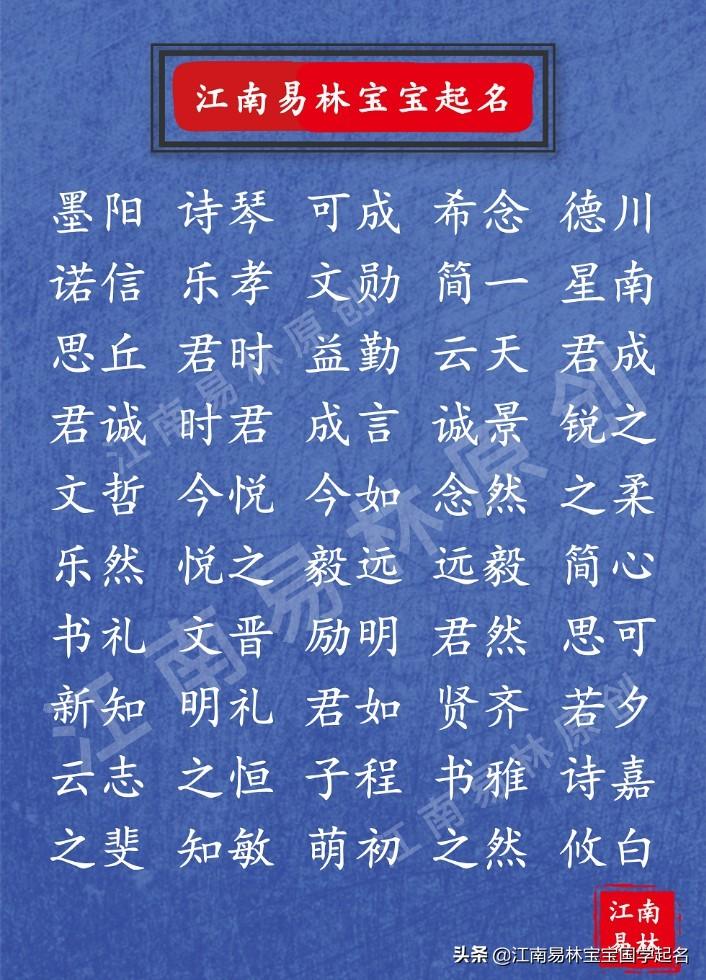 江南易林宝宝起名
墨阳 诗琴 可成 希念 德川
诺信 乐孝 文勋 简一 星南
思丘 君时 益勤 云天 君成
君诚 时君 成言 诚景 锐之
文哲 今悦 今如 念然 之柔
乐然 悦之 毅远 远毅 简心
书礼 文晋 励明 君然 思可
新知 明礼 君如 贤齐 若夕
云志 之恒 子程 书雅 诗嘉
之斐 知敏 萌初 之然 攸白
江南易林原创
江南易林原创
江南易林原创
江南
易林
头条 @江南易林宝宝国学起名